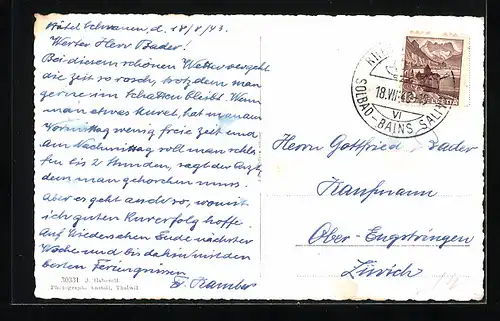 Hôtel Schwanen, d. 18/8/43.
Werter Herr Bader!
Bei diesem schönen Wetter vergeht
die Zeit so rasch, trotzdem man
gerne im Schatten bleibt. Wenn
man etwas kuret, hat man am
Vormittag wenig freie Zeit und
am Nachmittag soll man schla-
fen bis 2 Stunden, sagt der Arzt,
dem man gehorchen muss.
Aber es geht auch so, womit
ich guten Kurerfolg hoffe.
Auf Wiedersehen Ende nächster
Woche und bis dahin mit den
besten Feriengrüssen
E. Kamber
30331 J. Gaberell
Photograph. Anstalt, Thalwil
SOLBAD-BAINS SALINS
18.VIII.43
VI
HELVETIA
Herrn Gottfried Bader
Kaufmann
Ober-Engstringen
Zürich